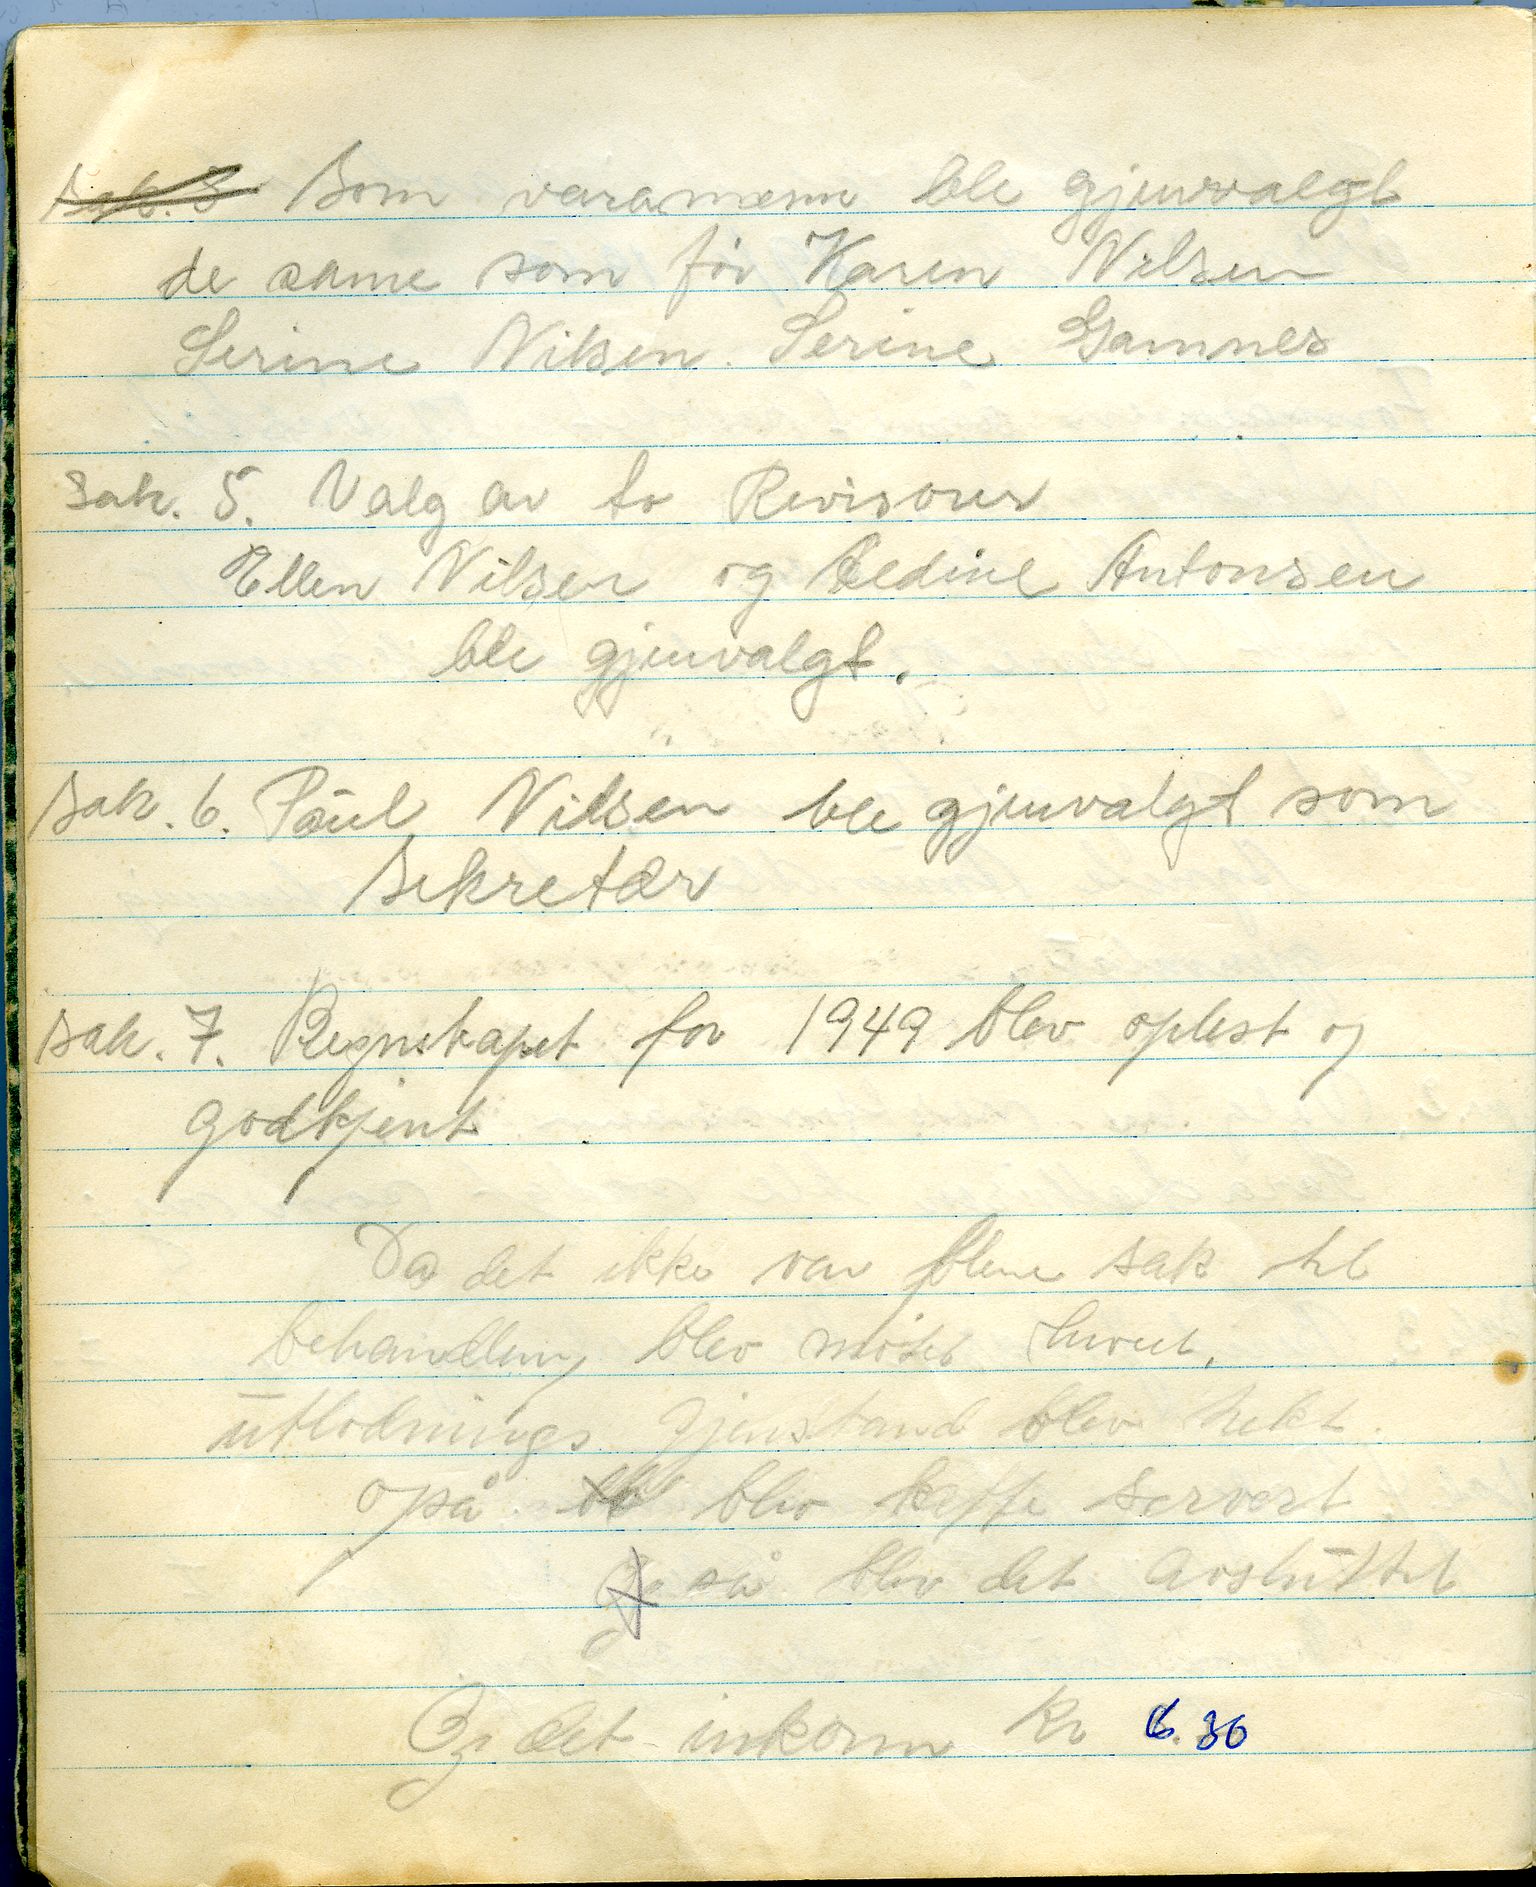 Sak. 3 Som varamenn ble gjenvalgt
de same som før Karen Nilsen
Serine Nilsen. Serine Gamnes
Sak. 5. Valg av to Revisorer
Ellen Nilsen og Hedine Antonsen
ble gjenvalgt.
Sak. 6. Paul Nilsen ble gjenvalgt som
Sekretær
Sak. 7. Regnskapet for 1949 blev oplest og
godkjent
Da det ikke var flere sak til
behandling blev møtet hevet.
utlodnings gjenstand blev trekt.
opså blev kaffe servert
så blev det avsluttet
Og det inkom Kr 6.30